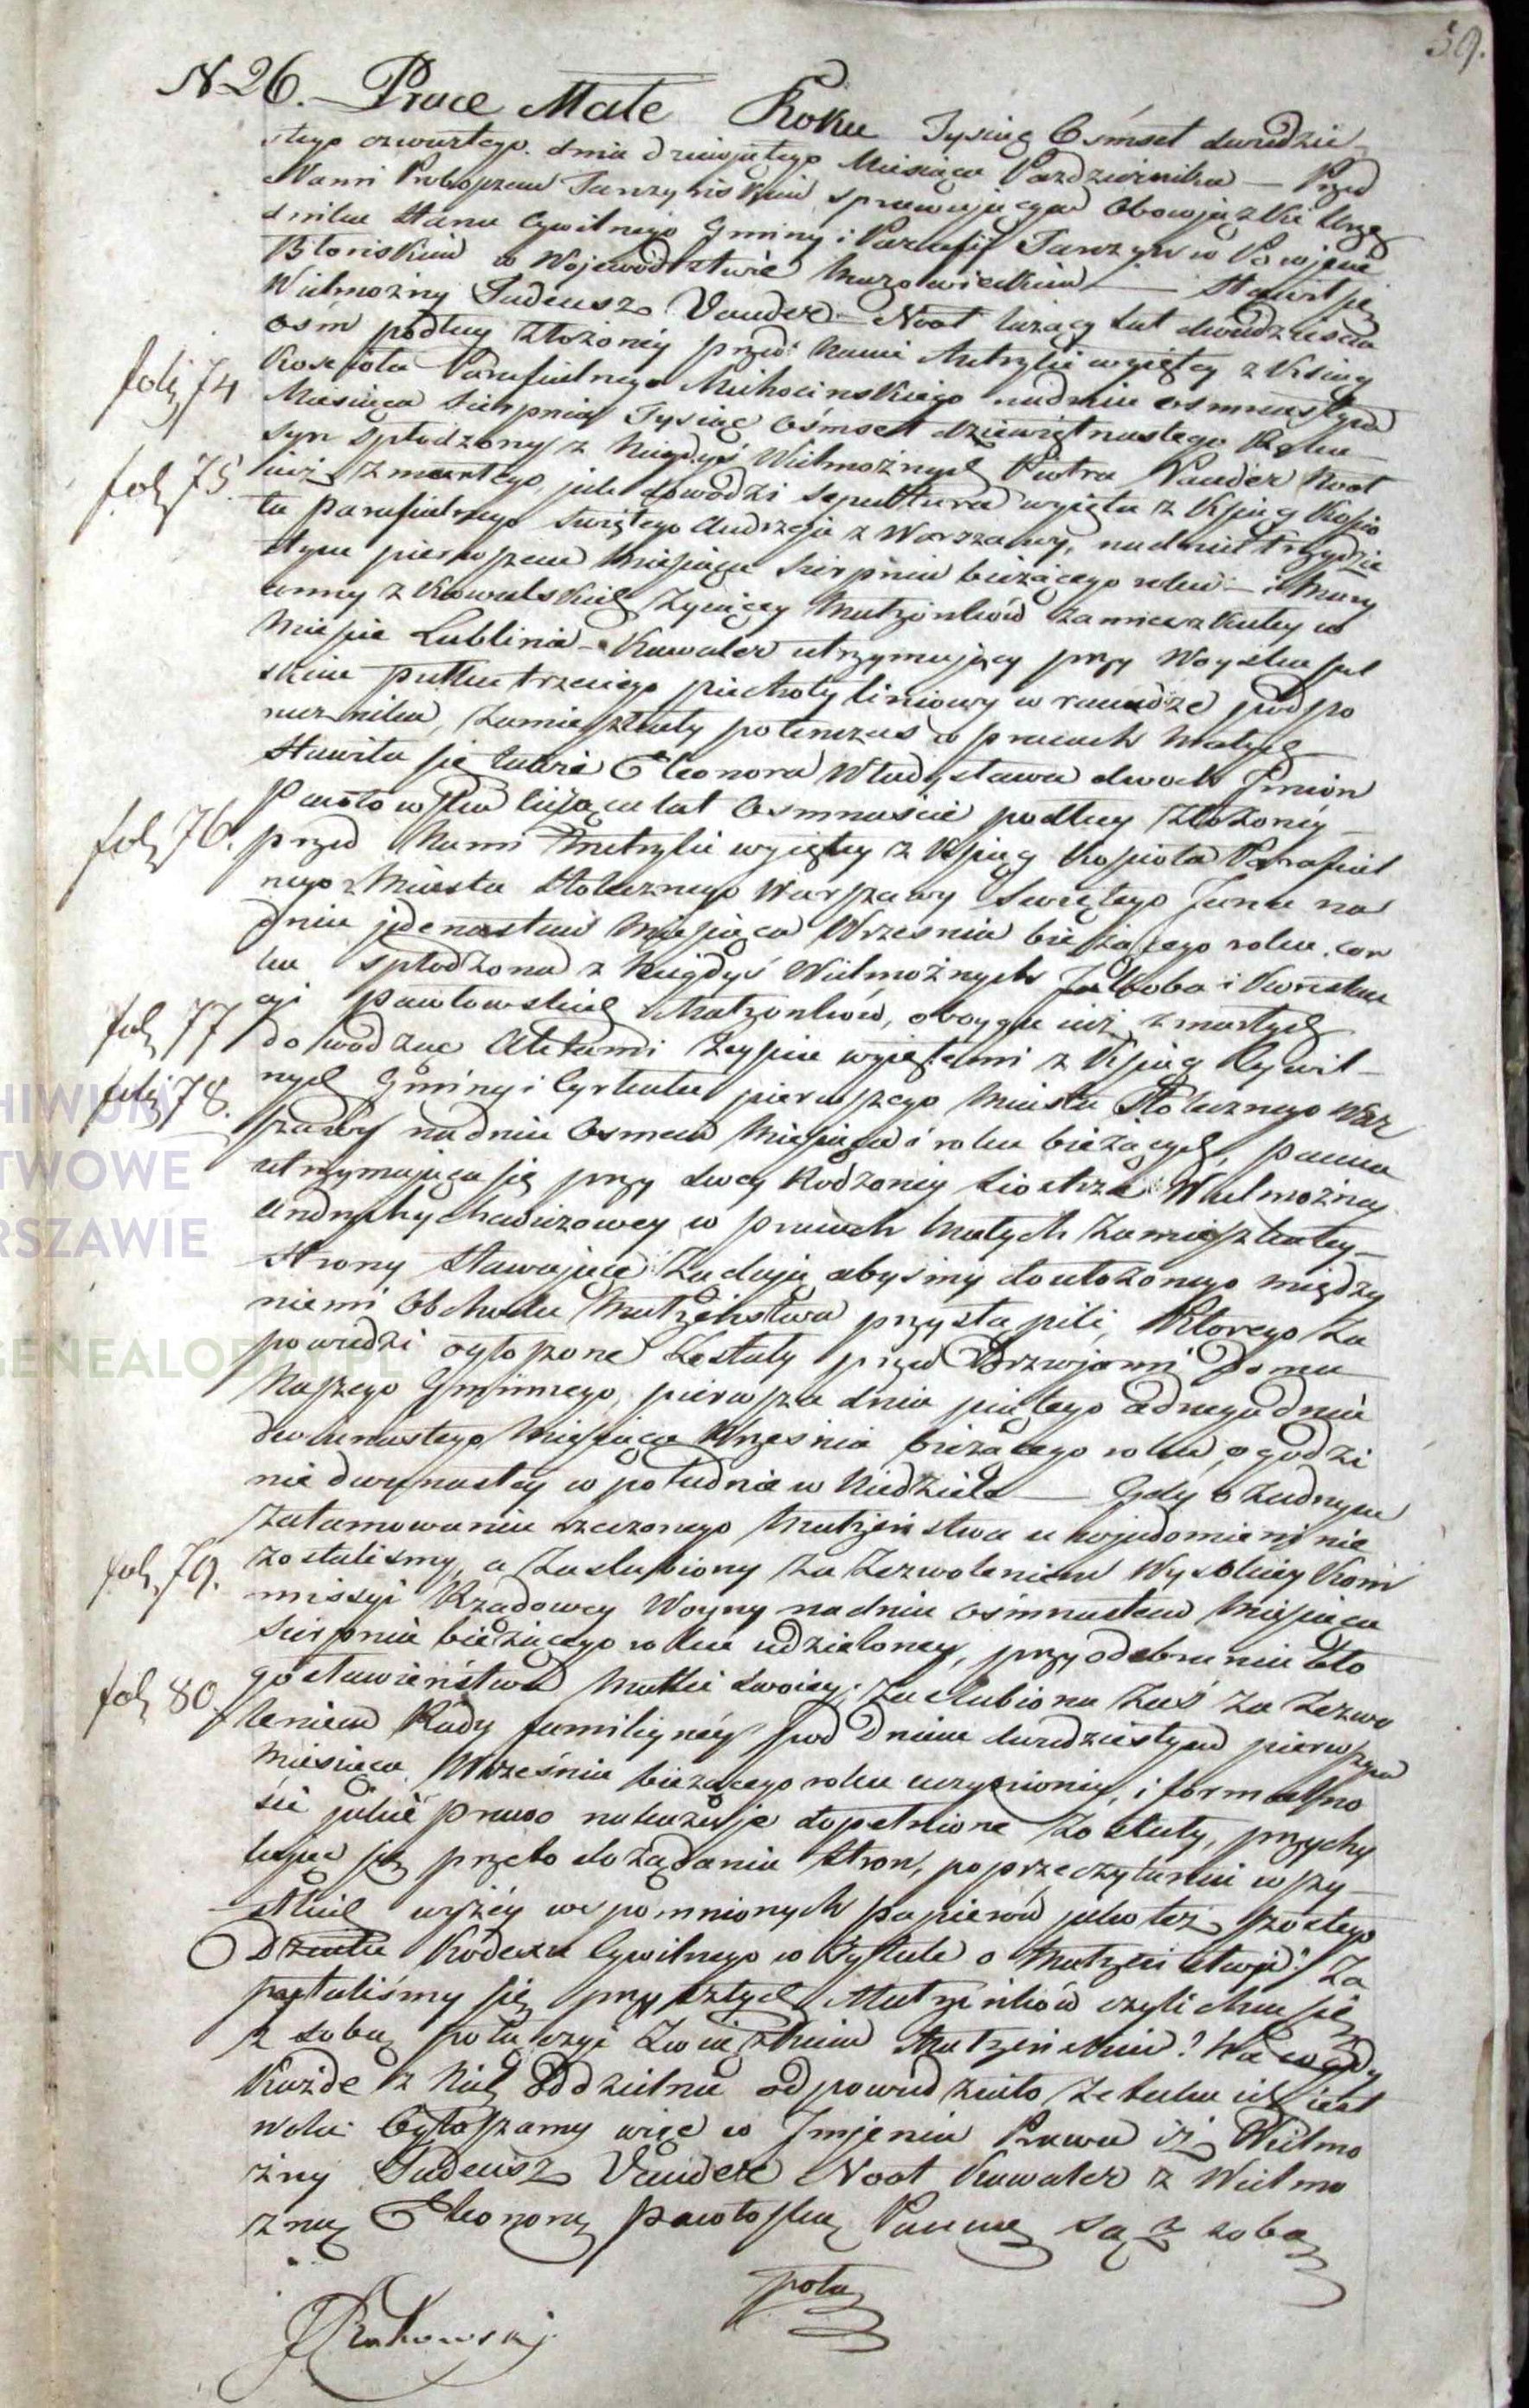 59.
N 26. Prace Małe Roku Tysiąc Ośmset dwudzie
stego czwartego dnia dziewiątego Miesiąca Pazdziernika — Przed
Nami Proboszczem Tarczyńskim sprawującym Obowiązki Urzę
dnika Stanu Cywilnego Gminy i Parafij Tarczyn w Powiecie
Błońskim w Wojewodztwie Mazowieckim — Stawił się
Wielmożny Tadeusz Vander Noot liczący lat dwadzieścia
ośm podług złożonéy przed Nami Metryki wyiętey z Ksiąg
foly 74
Koscioła Parafialnego Michocinskiego nadniu osmnastym
Miesiąca Sierpnia Tysiąc Ośmset dziewiętnastego Roku
syn spłodzony z Niegdyś Wielmożnych Piotra Vander Noot
fol 75.
iuż zmarłego, jak dowodzi Sepultura wyięta z Ksiąg Kościo
ła Parafialnego Świętego Andrzeja z Warszawy, nadniu trzydzie
stym pierwszem Miesiąca Sierpnia bieżącego roku — i Mary
anny z Kowalskich żyiącey Małżonków zamieszkałey w
Mieście Lublinie – Kawaler utrzymujący przy Woysku pol
skim Pułku trzeciego piechoty liniowy w randze podpo
rucznika, zamieszkały potenczas w Pracach Małych
Stawiła się także Eleonora Władysława dwoch Jmion
Pawłowska licząca lat Osmnaście podług złożonéy
fol 76.
przed Nami Metryki wyiętey z Ksiąg Kościoła Parafial
nego Miasta Stołecznego Warszawy Świętego Jana na
dniu jedenastem Miesiąca Wrzesnia bieżącego roku, cor
ka spłodzona z Niegdyś Wielmożnych Jakoba i Konstan
cyi Pawłowskich Małżonków, oboyga iuż zmarłych
fol 77
dowodzą Aktami Zeyścia wyiętemi z Ksiąg Cywil
foly 78.
nych Gminy i Cyrkułu pierwszego Miasta Stołecznego War
szawy nadniu Osmem Miesiąca i roku bieżących, panna
utrzymująca się przy swey Rodzoney Siostrze Wielmożney
Andrychewiczowey w Pracach Małych zamieszkałey —
Strony Stawające żądają abysmy do ułożonego między
niemi Obchodu Małżeństwa przystąpili, Ktorego Za
powiedzi ogłoszone zostały przed Drzwjami Domu
Naszego Gminnego, pierwsza dnia piątego a druga dnia
dwunastego Miesiąca Wrzesnia bieżącego roku, o godzi
nie dwunastey w południe w Niedziele — Gdy o żadnym
zatamowaniu rzeczonego Małżeństwa uwjadomieni nie
fol. 79.
zostaliśmy, a Zaslubiony za Zezwoleniem Wysokiey Kom
missyi Rządowey Woyny nadniu ośmnastem Miesiąca
Sierpnia bieżącego roku udzieloney, przy odebraniu bło
fol 80.
gosławieństwa Matki swoiey; Zaślubiona zaś za Zezwo
leniem Rady familiyney pod dniem dwudziestym pierwszym
Miesiąca Września bieżącego roku uczynioniey, i formalno
ści jakie prawo nakazuje dopełnione zostały, przychy
lając się przeto do żądania Stron, po przeczytaniu wszy
stkich wyżéy wspomnionych papierów jako też szostego
Działu Kodexu Cywilnego w Tytule o Małżeństwie Za
pytaliśmy się przyszłych Małżonków czyli chcą się
z sobą połączyć Związkiem Małżeńskim? Na co gdy
Każde z Nich oddzielnie odpowiedziało że taka ich iest
wola Ogłaszamy więc w Jmieniu Prawa iż Wielmo
żny Tadeusz Vander Noot Kawaler z Wielmo
żną Eleonorą Pawłoską Panną są z sobą
połą
JRakowski
HIWUM
TWOWE
RSZAWIE
GENEALODZY.PL